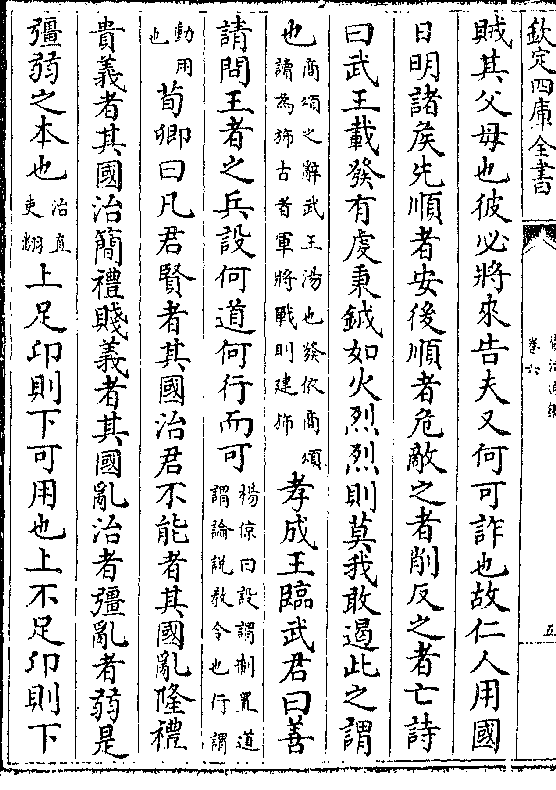 欽定四庫全書
卷六
五
賊其父母也彼必將來告夫又何可詐也故仁人用國
日明諸侯先順者安後順者危敵之者削反之者亡詩
曰武王載發有虔秉鉞如火烈烈則莫我敢遏此之謂
也商頌之辭武王湯也發依商頌讀為斾古者軍將戰則建斾孝成王臨武君曰善
請問王者之兵設何道何行而可楊倞曰設謂制置道謂論說教令也行謂
動用也荀卿曰凡君賢者其國治君不能者其國亂隆禮
貴義者其國治簡禮賤義者其國亂治者彊亂者弱是
彊弱之本也治直吏翻上足卬則下可用也上不足卬則下